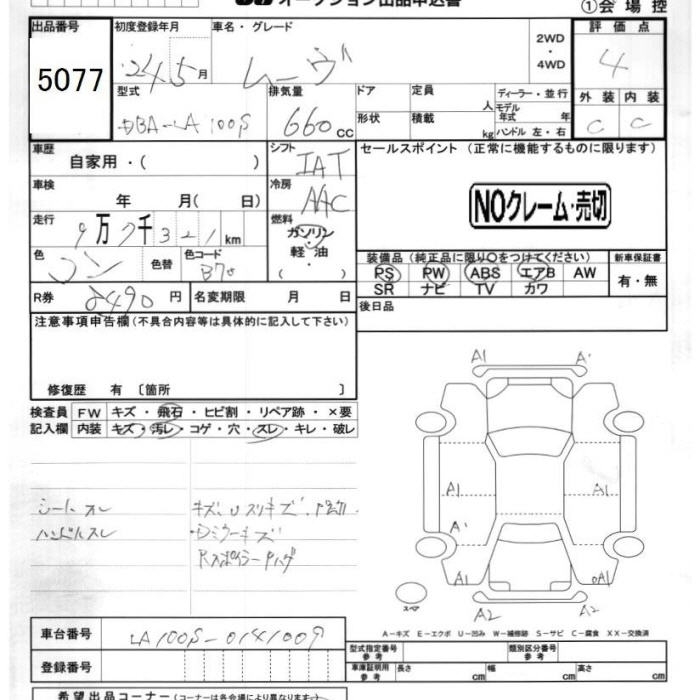 オークション出品申込書 ①会場控
出品番号 初度登録年月 車名・グレード 2WD・4WD 評価点
5077 24 5月 ムーヴ 4
型式 排気量 ドア 定員 人 ディーラー・並行 外装 内装
DBA-LA100S 660cc 形状 積載 kg モデル年式 年 ハンドル 左・右 C C
車歴 自家用・( ) シフト IAT セールスポイント (正常に機能するものに限ります)
車検 年 月( 日) 冷房 AAC NOクレーム・売切
走行 9万7千321km 燃料 ガソリン・軽油・( )
色 コン 色替 色コード B70
装備品 (純正品に限り○をつけてください) 新車保証書
PS PW ABS エアB AW 有・無
SR ナビ TV カワ
R券 8490円 名変期限 月 日 後日品
注意事項申告欄 (不具合内容等は具体的に記入して下さい)
修復歴 有 〔箇所 〕
検査員 FW キズ・飛石・ヒビ割・リペア跡・×要
記入欄 内装 キズ・汚レ・コゲ・穴・スレ・キレ・破レ
シートスレ
ハンドルスレ
キズ、Uスリキズ
ミラーキズ
Rスポイラー
A1 A'
A1 A1
A'
A1 A1
スペア A2 A2
A-キズ E-エクボ U-凹み W-補修跡 S-サビ C-腐食 XX-交換済
車台番号 LA100S-0141009
登録番号
型式指定番号 参考 類別区分番号 参考
車庫証明用 参考 長さ cm 幅 cm 高さ cm
希望出品コーナー (コーナーは各会場により異なります)